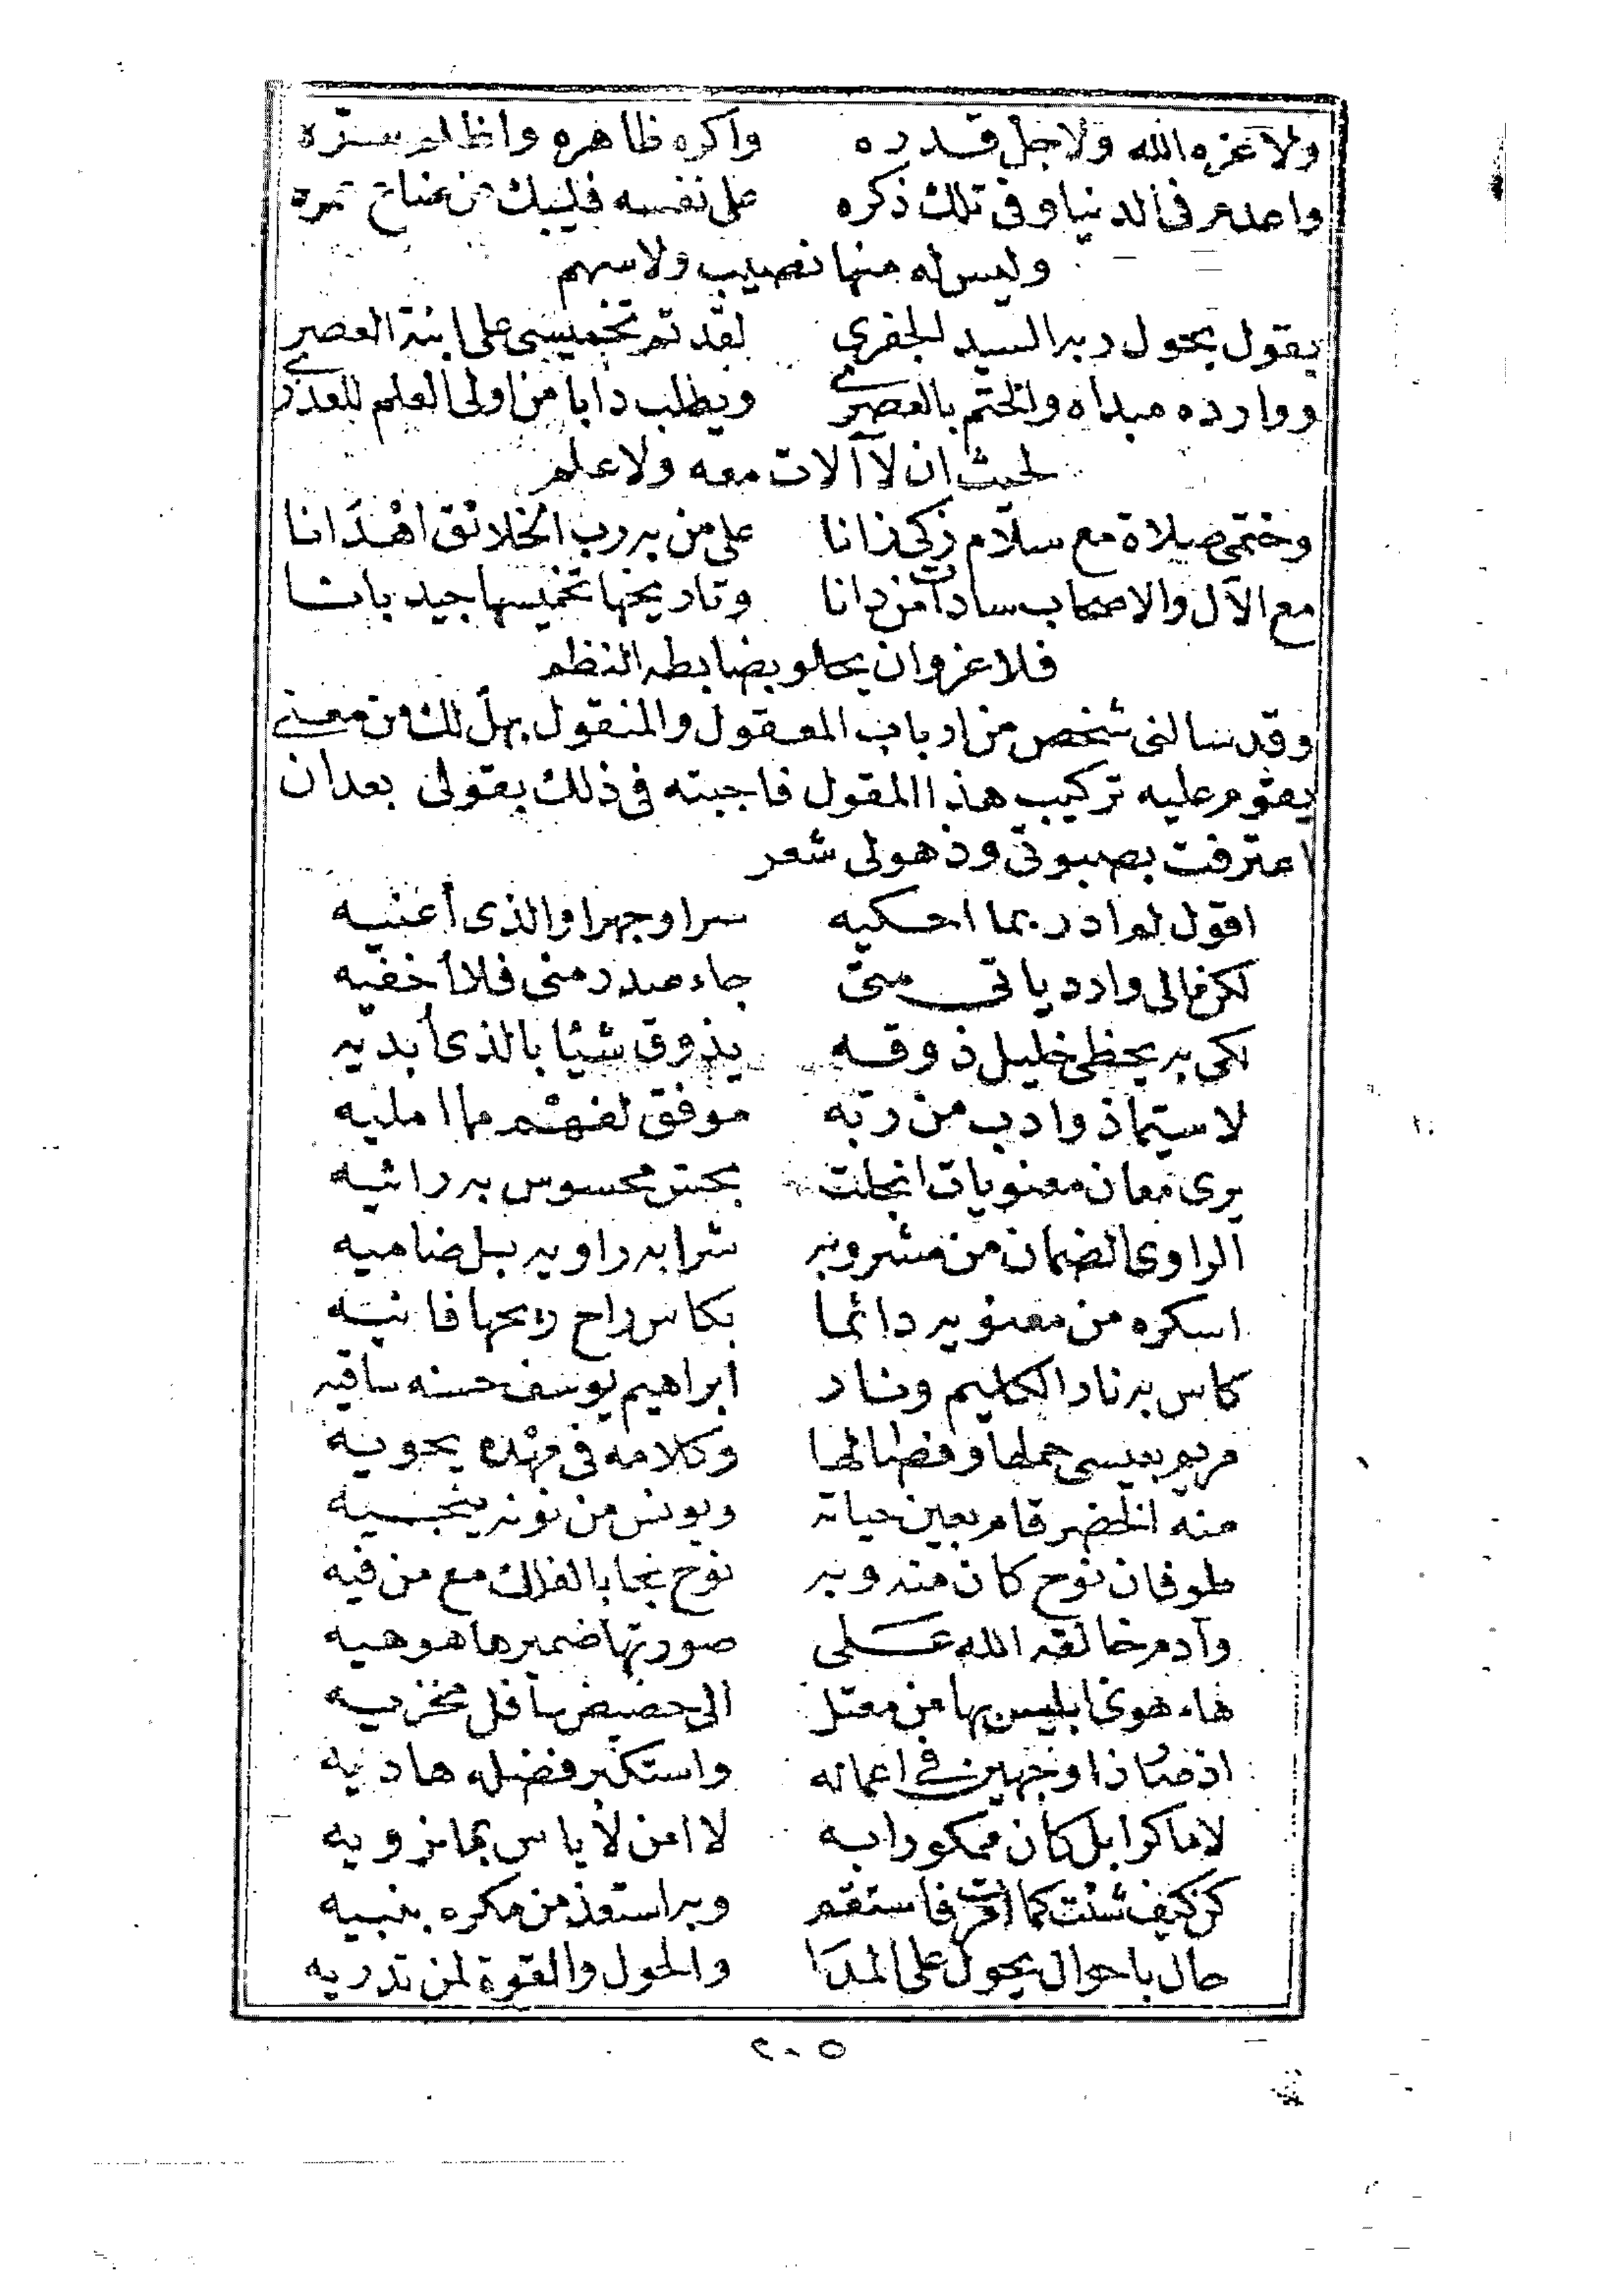 ولا عزه الله ولا جل قدره واكره ظاهره واظلم سره
واعدم في الدنيا وفي تلك ذكره على نفسه فليبك من ضاع عمره
وليس له منها نصيب ولا سهم
يقول بحول ربه السيد الجفري لقد تم تخميسي على ابنة العصر
ووارده مبداه والختم بالعصري ويطلب دابا من اولى العلم للعذر
لحيث ان لا آلات معه ولا علم
وختمي صلاة مع سلام زكى زانا على من به رب الخلائق اهدانا
مع الآل والاصحاب سادات من دانا وتاريخها تخميسها جيد بانا
فلا غزوان يحلو بضابطه النظم
وقد سالنى شخص من ارباب المعقول والمنقول بهل لك من معنى
يقوم عليه تركيب هذا المقول فاجبته في ذلك بقولى بعد ان
اعترفت بصبوتى وذهولى شعر
اقول لم ادر بما احكيه سرا وجهرا والذى أعنيه
لكن مالى وارد ياتى متى جاء صدر منى فلا أخفيه
لكى به يحظى خليل ذوقه يذوق شيئا بالذى أبديه
لاسيما ذو ادب من ربه موفق لفهم ما امليه
يرى معان معنويات انجلت بحس محسوس به رائيه
الراوى الضمان من مشروبه شرابه راويه بل ضاميه
اسكره من معنويه دائما بكاس راح ريحها فانيه
كاس به نار الكليم ونار ابراهيم يوسف حسنه ساقيه
مريم بعيسى حملها وفصالها وكلامه في مهده يحويه
منه الخضر قام بعين حياته ويونس من نونه ينجيه
طوفان نوح كان منه وبه نوح نجا بالفلك مع من فيه
وآدم خالقه الله على صورتها ضميرها هو هيه
هاء هوى ابليس بها من معتل الى حضيض سافل مخزيه
اذ صار ذا وجهين في اعماله واستكبر فضله هاديه
لا ماكرا بل كان ممكورا به لا امن لا ياس بما نرويه
كن كيف شئت كما امرت فاستقم وبه استعذ من مكره بنبيه
حال باحوال يحول على المدا والحول والقوة لمن تدريه
٢٠٥